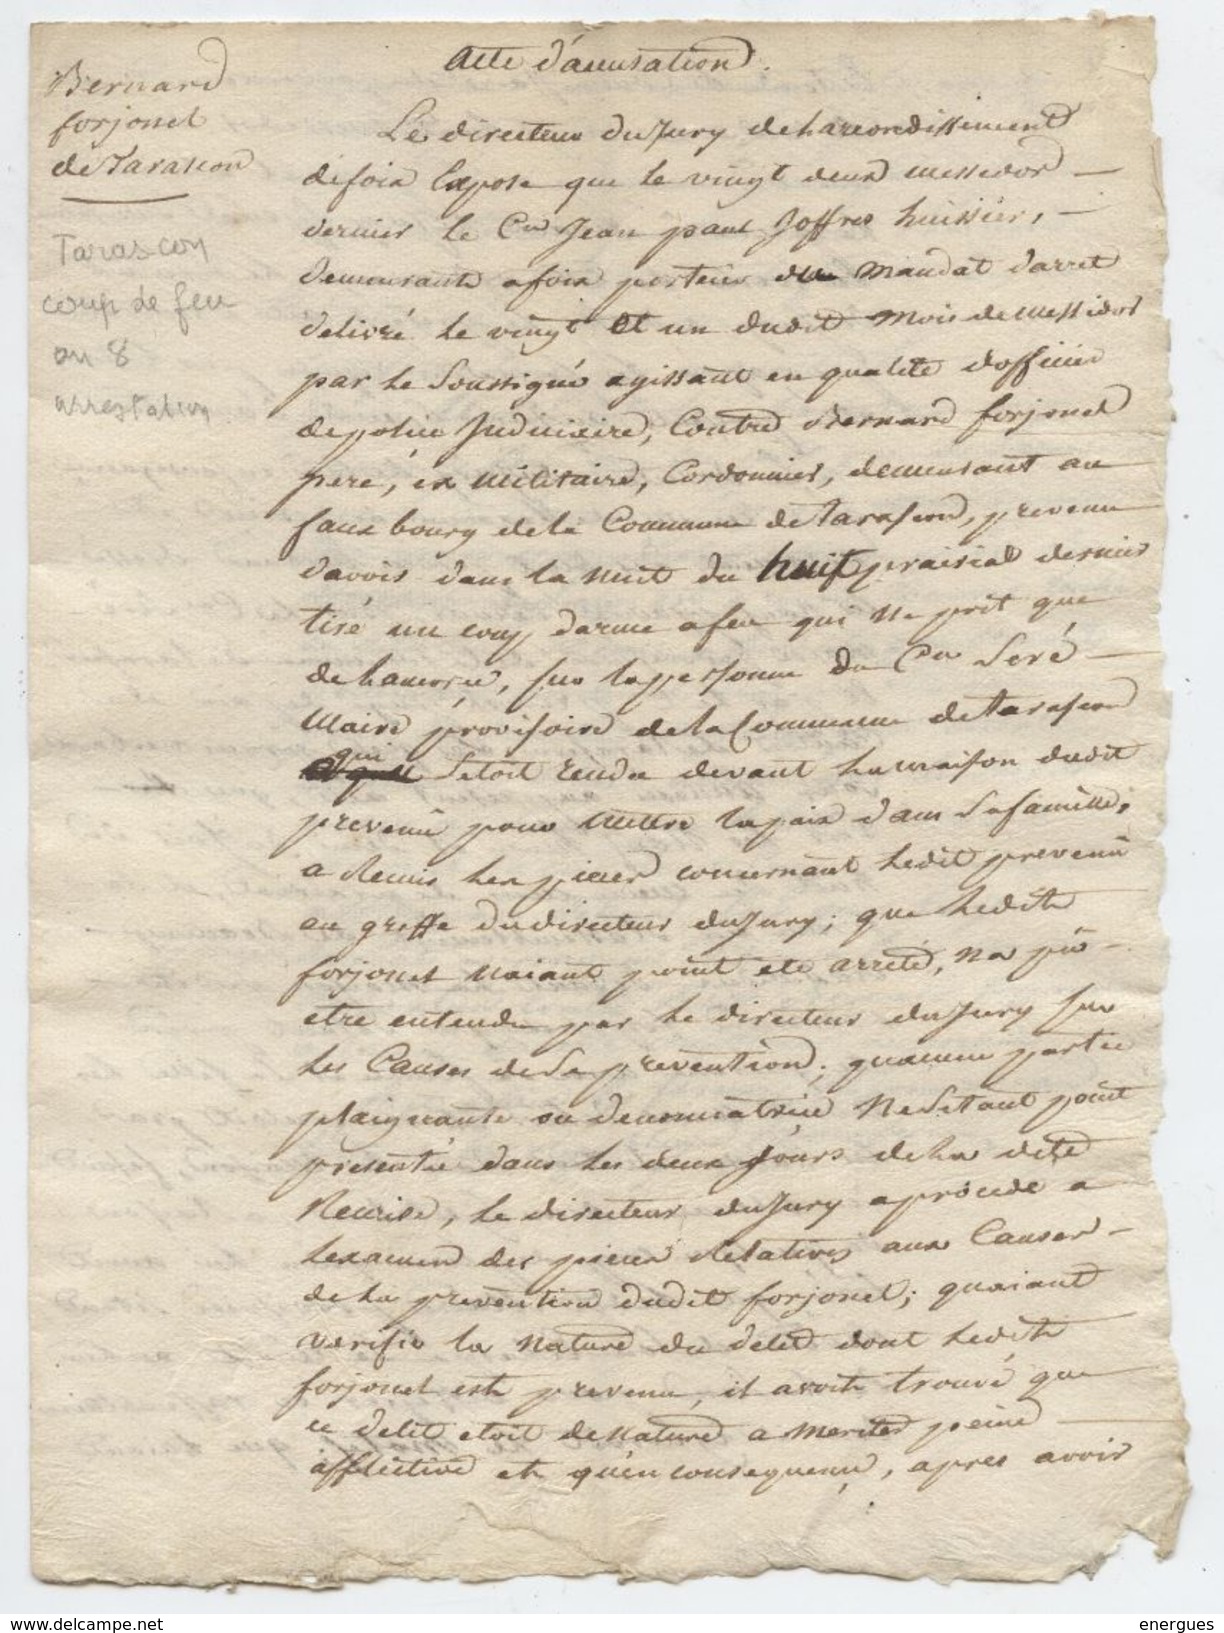 Acte d'acusation.
Bernard
forjonel
de Tarascon
Tarascon
coup de feu
an 8
arrestation
Le directeur du Jury de harrondissement
de foix Expose que le vingt deux messidor
dernier le Cen Jean paul Joffres huissier,
demeurant a foix porteur du Mandat d'arret
delivré le vingt et un dudit Mois de Messidor
par le Soussigné agissant en qualité d'officier
de police Judiciaire, Contre Bernard forjonel
pere, ex militaire, Cordonnier, demeurant au
faux bourg de la Commune de Tarascon, prevenu
davoir dans la nuit du huit prairial dernier
tiré un coup darme a feu qui ne prit que
de hamorce, sur la personne du Cen Seré
Maire provisoire de la Commune de Tarascon
qui Setoit rendu devant ha maison dudit
prevenu pour mettre la paix dans Sa famille,
a Remis hes pieces concernant hedit prevenu
au greffe du directeur du Jury; que hedit
forjonel naiant point ete arreté, na pu
etre entendu par le directeur du Jury sur
les Causes de Sa prevention; quaucune partie
plaignante ou denonciatrice ne Setant point
presentée dans les deux Jours de ha dite
Remise, le directeur du Jury a procedé a
hexamen des pieces Relatives aux Causes
de ha prevention dudit forjonel; quaiant
verifié la nature du delit dont hedit
forjonel est prevenu, il avoit trouvé que
ce delit etoit de nature a meriter peine
afflictive et qu'en consequence, apres avoir
www.delcampe.net
energues